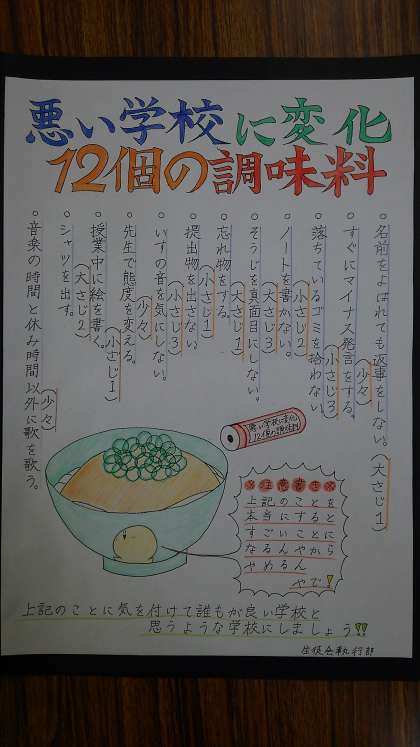 悪い学校に変化
12個の調味料
○名前をよばれても返事をしない。(大さじ1)
○すぐにマイナス発言をする。(少々)
○落ちているゴミを拾わない。(小さじ3)
○ノートを書かない。(小さじ2)
○そうじを真面目にしない。(大さじ3)
○忘れ物をする。(大さじ1)
○提出物を出さない。(小さじ1)
○いすの音を気にしない。(小さじ3)
○先生で態度を変える。(少々)
○授業中に絵を書く。(小さじ1)
○シャツを出す。(大さじ2)
○音楽の時間と休み時間以外に歌を歌う。(少々)
悪い学校に変化
12個の調味料
※注意書き※
上記のことを
本当にすると
すごいことに
なるんやから
やめるん
やで!
上記のことに気を付けて誰もが良い学校と
思うような学校にしましょう!!
生徒会執行部